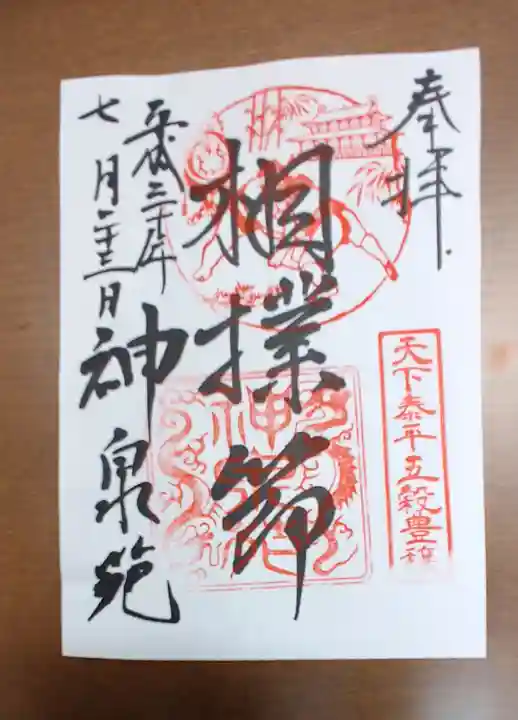 奉拝
天下泰平五穀豊穣
相撲節
平成三十年
七月二十三日
神泉苑
神泉苑